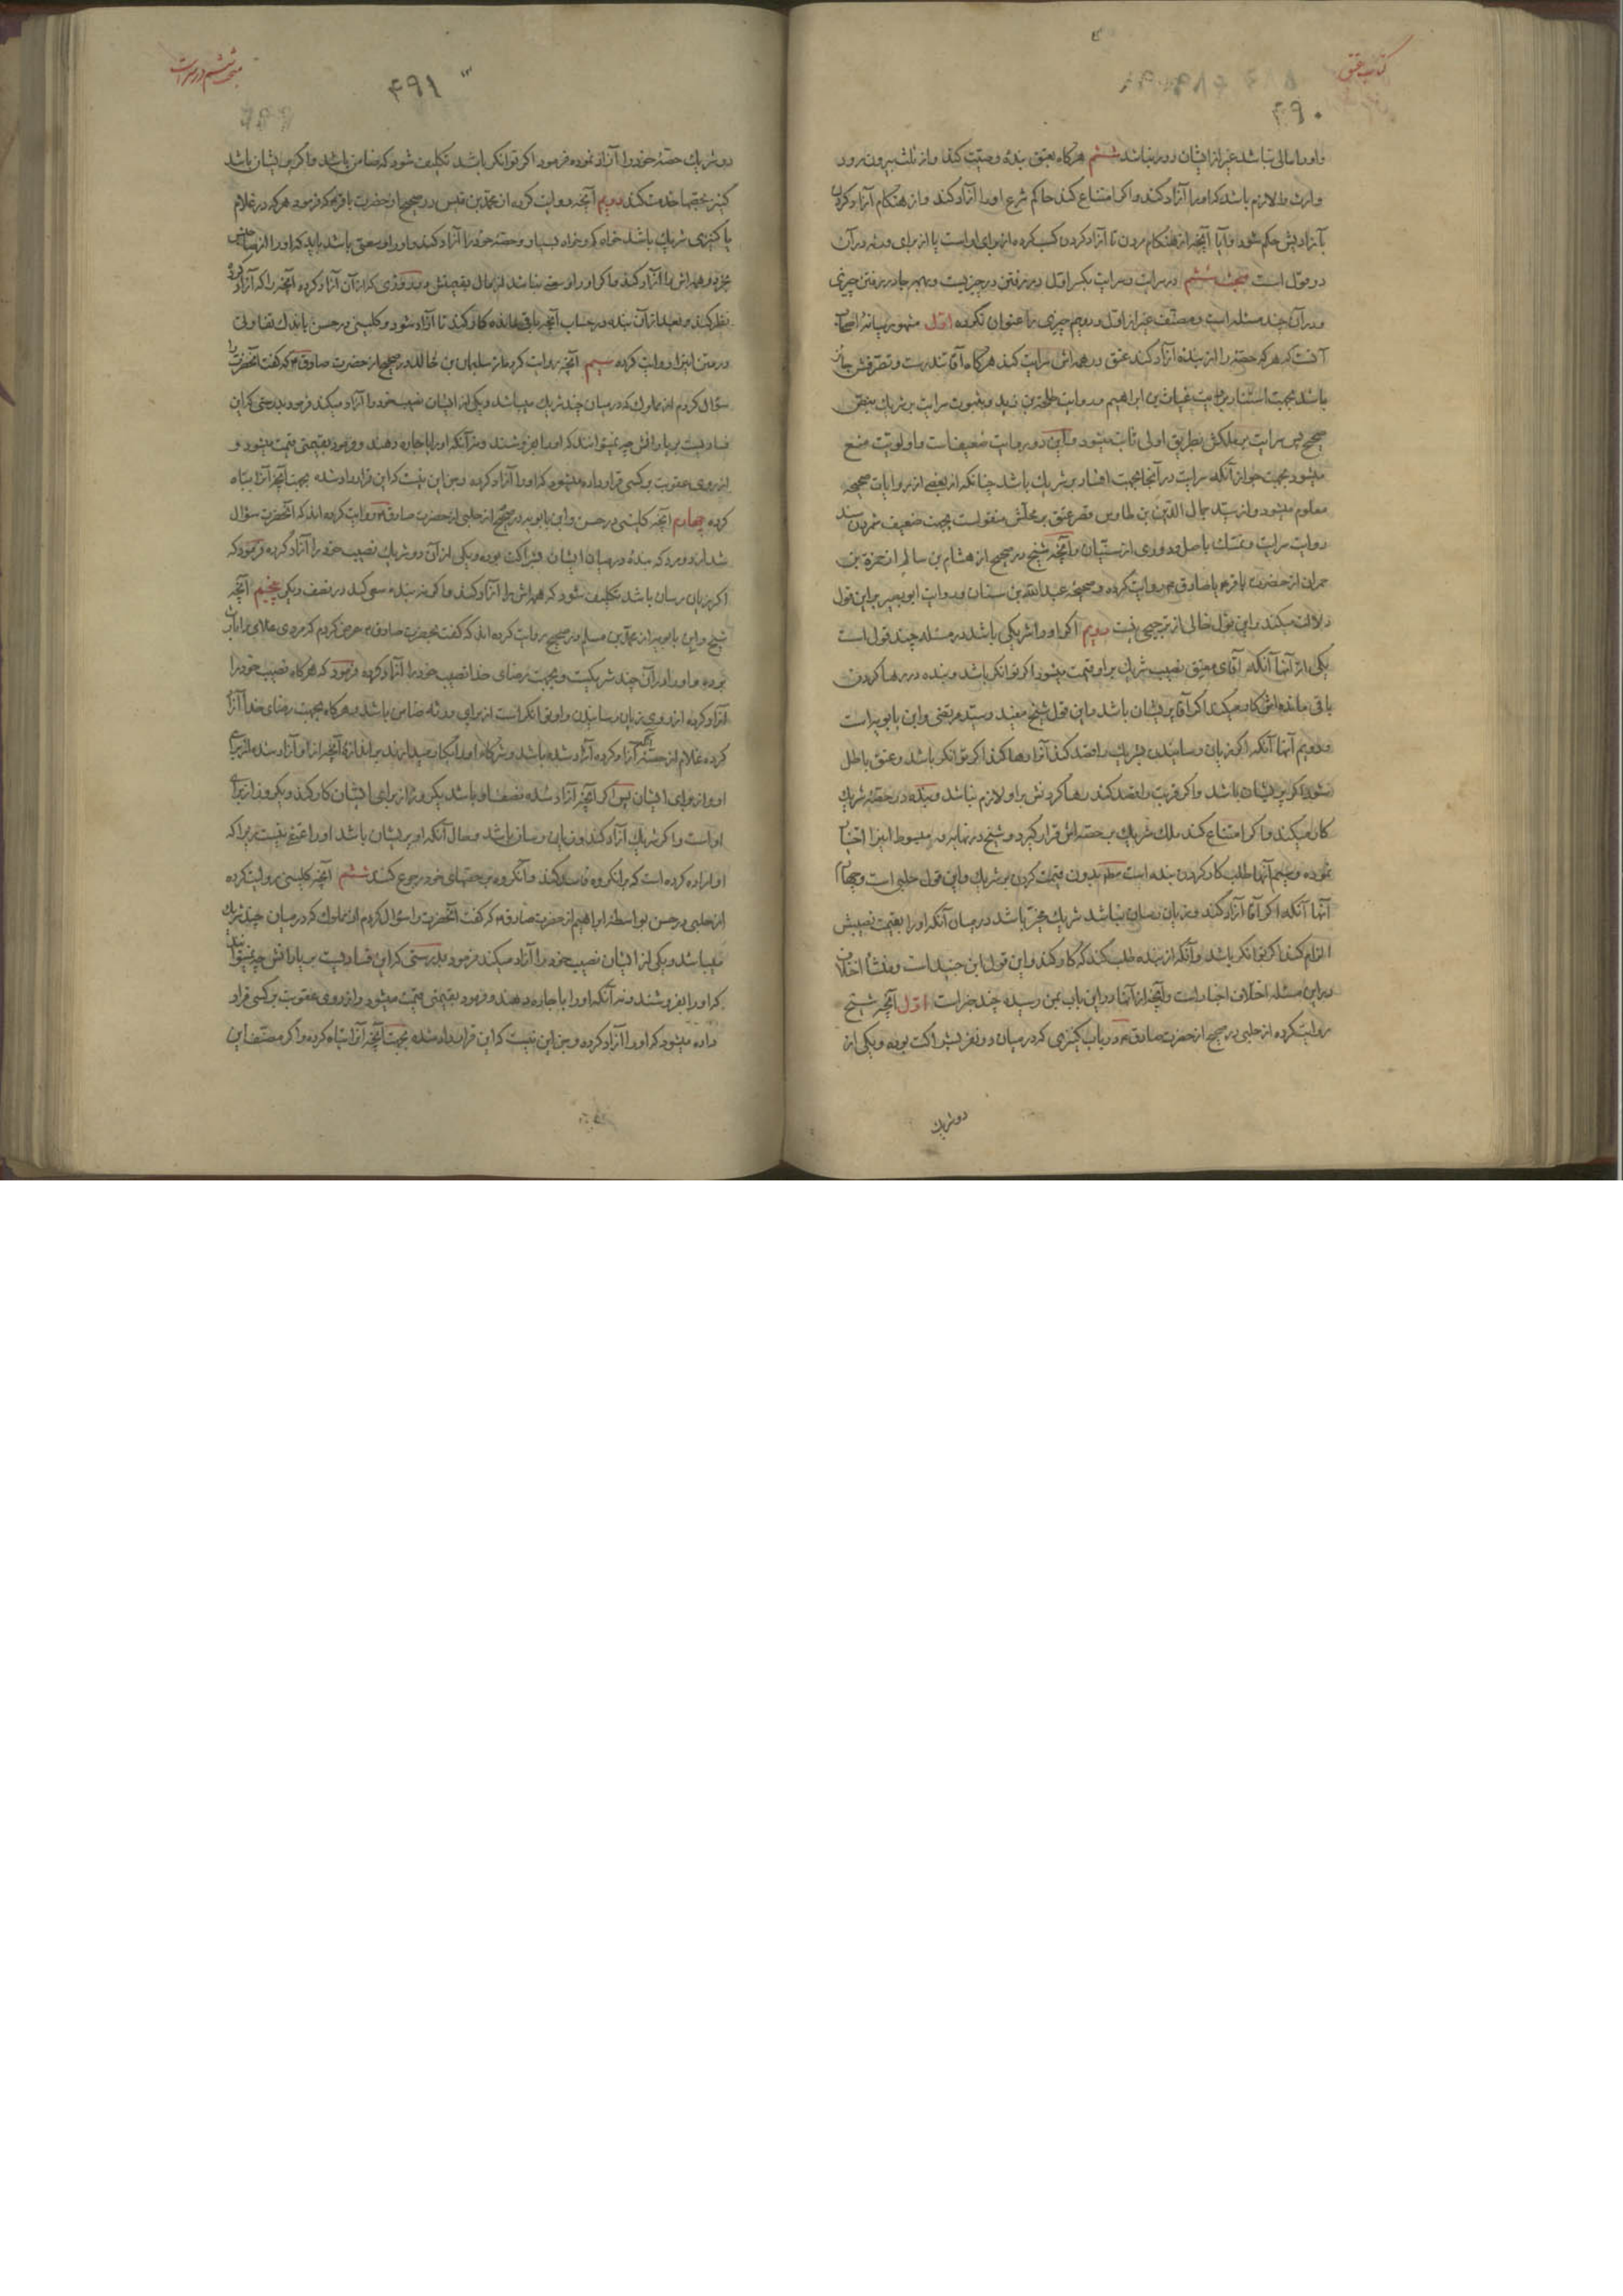 کتاب عتق
۴۹۰
و او را مالی نباشد غیر از ایشان دور نباشد ششم هرگاه بعتق بنده وصیت کند و از ثلث بیرون رود
وارث را لازم باشد که او را آزاد کند و اگر امتناع کند حاکم شرع او را آزاد کند و از هنگام آزاد کردن
بآزادیش حکم شود و آیا آنچه از هنگام مردن تا آزاد کردن کسب کرده از برای او است یا از برای ورثه در آن
دو قول است مبحث ششم در سرایت و سرایت بکسر اول در رفتن در چیزیست و بهر جا در رفتن چیزی
و در آن چند مسئله است و مصنف غیر از اول و دویم چیزی را عنوان نکرده اول مشهور میانهٔ اصحاب
آنست که هر که حصه را از بنده آزاد کند عتق در همه اش سرایت کند هرگاه آقا تندرست و تصرفش جایز
باشد بجهت استناد بروایت غیاث بن ابراهیم و روایت طلحة بن زید و بثبوت سرایت بر شریک بنص
صحیح پس سرایت بر ملکش بطریق اولی ثابت میشود و این دو روایت ضعیف است و اولویت منع
میشود بجهت جواز آنکه سرایت در آنجا بجهت افساد بر شریک باشد چنانکه از بعضی از روایات صحیحه
معلوم میشود و از سید جمال الدین بن طاوس قصر عتق بر محلش منقولست بجهت ضعیف شمردن سند
روایت سرایت و تمسک باصل و دوری از سنیان و آنچه شیخ در صحیح از هشام بن سالم از حمزة بن
حمران از حضرت باقر یا صادق ع روایت کرده و صحیحه عبد الله بن سنان و روایت ابو بصیر بر این قول
دلالت میکند و این قول خالی از ترجیحی نیست دویم اگر او را شریکی باشد در مسئله چند قول است
یکی از آنها آنکه آقای معتق نصیب شریک بر او قیمت میشود اگر توانگر باشد و بنده در رها کردن
باقی مانده اش کار میکند اگر آقا پریشان باشد و این قول شیخ مفید و سید مرتضی و ابن بابویه است
و دویم آنها آنکه اگر زیان رسانیدن بشریک را قصد کند آنرا رها کند اگر توانگر باشد و عتق باطل
شود اگر پریشان باشد و اگر قربت را قصد کند رها کردنش بر او لازم نباشد و بنده در حصهٔ شریک
کار میکند و اگر امتناع کند ملک شریک بر حصه اش قرار گیرد و شیخ در نهایه و مبسوط اینرا اختیار
نموده و سیم آنها طلب کار کردن بنده است بدون قیمت کردن بر شریک و این قول حلبی است و چهارم
آنها آنکه اگر آقا آزاد کند و زیان رسان نباشد شریک مخیر باشد در میان آنکه او را بقیمت نصیبش
الزام کند اگر توانگر باشد و آنکه از بنده طلب کند که کار کند و این قول ابن جنید است و منشأ اختلاف
در این مسئله اختلاف اخبار است و آنچه از آنها در این باب بمن رسیده چند خبر است اول آنچه شیخ
روایت کرده از حلبی در صحیح از حضرت صادق ع در باب کنیزی که در میان دو نفر بشراکت بوده و یکی از
دو شریک
مبحث ششم در سرایت
۴۹۱
دو شریک حصهٔ خود را آزاد نموده فرمود اگر توانگر باشد تکلیف شود که ضامن باشد و اگر پریشان باشد
کنیز بحصها خدمت کند دویم آنچه روایت کرده از محمد بن قیس در صحیح از حضرت باقر ع که فرمود هر که در غلام
یا کنیزی شریک باشد خواه کم و خواه بسیار و حصهٔ خود را آزاد کند و او را وسعتی باشد باید که او را از صاحبش
بخرد و همه اش را آزاد کند و اگر او را وسعتی نباشد از مال بقیمتش در روزی که از آن آزاد کرده آنچه را که آزاد کرده
نظر کند و بعد از آن بنده در حساب آنچه باقی مانده کار کند تا آزاد شود و کلینی در حسن باندک تفاوتی
در متن اینرا روایت کرده سیم آنچه روایت کرده از سلیمان بن خالد در صحیح از حضرت صادق ع که گفت آنحضرت را
سؤال کردم از مملوک که در میان چند شریک میباشد و یکی از ایشان نصیب خود را آزاد میکند فرمود بدرستی که این
فسادیست بر یارانش چه نمیتوانند که او را بفروشند و نه آنکه او را باجاره دهند و فرمود بقیمتی قیمت میشود و
از روی عقوبت بر کسی قرار داده میشود که او را آزاد کرده و جز این نیست که این قرار داده شده بجهت آنچه آنرا تباه
کرده چهارم آنچه کلینی در حسن و ابن بابویه در صحیح از حلبی از حضرت صادق ع روایت کرده اند که آنحضرت سؤال
شد از دو مرد که بندهٔ در میان ایشان بشراکت بوده و یکی از آن دو شریک نصیب خود را آزاد کرده فرمود که
اگر زیان رسان باشد تکلیف شود که همه اش را آزاد کند و اگر نه بنده سعی کند در نصف دیگر پنجم آنچه
شیخ و ابن بابویه از محمد بن مسلم در صحیح روایت کرده اند که گفت بحضرت صادق ع عرض کردم که مردی غلامی را
بوده و او را در آن چند شریکست و بجهت رضای خدا نصیب خود را آزاد کرده فرمود که هرگاه نصیب خود را
آزاد کرده از روی زیان رسانیدن و او توانگر است از برای ورثه ضامن باشد و هرگاه بجهت رضای خدا آزاد
کرده غلام از حصه آنکه آزاد کرده آزاد شده باشد و شرکاء او را بکار میدارند بر اندازهٔ آنچه از او آزاد شده از برای
او و از برای ایشان پس اگر آنچه آزاد شده نصف او باشد یکروز از برای ایشان کار کند و یکروز از برای
او است و اگر شریک آزاد کند و زیان رسان باشد و حال آنکه او پریشان باشد او را عتقی نیست زیرا که
او اراده کرده است که بر آنگروه فاسد کند و آنگروه بر حصهای خود رجوع کنند ششم آنچه کلینی روایت کرده
از حلبی در حسن بواسطهٔ ابراهیم از حضرت صادق ع که گفت آنحضرت را سؤال کردم از مملوک که در میان چند شریک
میباشد و یکی از ایشان نصیب خود را آزاد میکند فرمود بدرستی که این فسادیست بر یارانش چه نمیتوانند
که او را بفروشند و نه آنکه او را باجاره دهند و فرمود بقیمتی قیمت میشود و از روی عقوبت بر کسی قرار
داده میشود که او را آزاد کرده و جز این نیست که این قرار داده شده بجهت آنچه آنرا تباه کرده و اگر مصنف این